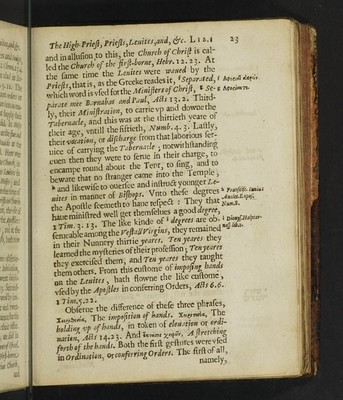 The High-Priest, Priests, Levites, and, &c. LIB. I 23
and in allusion to this, the Church of Christ is cal-
led the Church of the first-borne, Hebr. 12. 23. At
the same time the Levites were waued by the
Priests, that is, as the Greeke reades it, Separated,
which word is vsed for the Ministers of Christ, Se-
parate mee Barnabas and Paul, Acts 13. 2. Third-
ly, their Ministration, to carrie vp and downe the
Tabernacle, and this was at the thirtieth yeare of
their age, vntill the fiftieth, Numb. 4. 3. Lastly,
their vacation, or discharge from that laborious ser-
uice of carrying the Tabernacle; notwithstanding
euen then they were to serue in their charge, to
encampe round about the Tent, to sing, and to
beware that no stranger came into the Temple;
and likewise to ouersee and instruct younger Le-
uites in manner of Bishops. Vnto these degrees
the Apostle seemeth to haue respect: They that
haue ministred well get themselues a good degree,
1 Tim. 3. 13. The like kinde of degrees are ob-
seruable among the Vestall Virgins, they remained
in their Nunnery thirtie yeares. Ten yeares they
learned the mysteries of their profession; Ten yeares
they exercised them, and Ten yeares they taught
them others. From this custome of imposing hands
on the Levites, hath flowne the like custome,
vsed by the Apostles in conferring Orders, Acts 6. 6.
1 Tim. 5. 22.
Obserue the difference of these three phrases,
Χειροθεσία, The imposition of hands. Χειροτονία, The
holding vp of hands, in token of eleuation or ordi-
nation, Acts 14. 23. And ἔκτασις χειρῶν, A stretching
forth of the hands. Both the first gestures were vsed
in Ordination, or conferring Orders. The first of all,
namely,